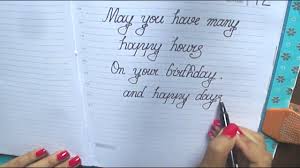 May you have many
happy hours
On your birthday.
and happy days